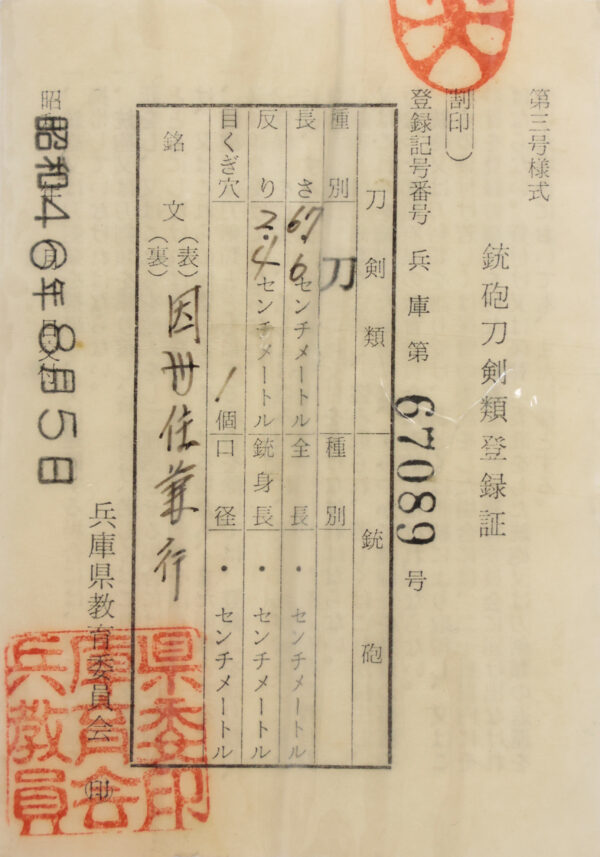 第三号様式
銃砲刀剣類登録証
登録記号番号 兵庫第 67089 号
(割印)
刀剣類 銃砲
種別 刀 種別
長さ 67.6センチメートル 全長 ・センチメートル
反り 2.4センチメートル 銃身長 ・センチメートル
目くぎ穴 1個 口径 ・センチメートル
銘文 (表) 因州住兼行
(裏)
昭和46年8月5日
兵庫県教育委員会 (印)
兵庫県
教育委
員会印